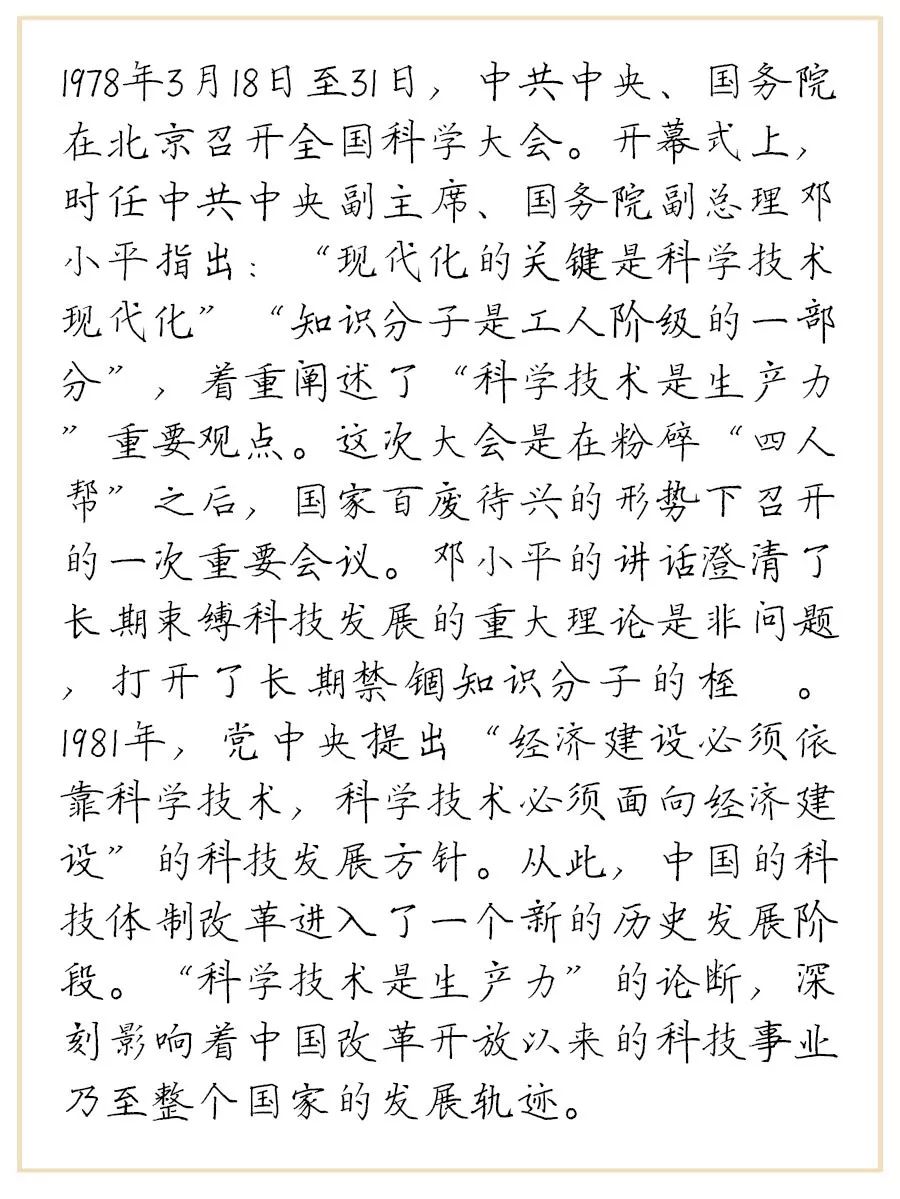 1978年3月18日至31日，中共中央、国务院
在北京召开全国科学大会。开幕式上，
时任中共中央副主席、国务院副总理邓
小平指出：“现代化的关键是科学技术
现代化”“知识分子是工人阶级的一部
分”，着重阐述了“科学技术是生产力
”重要观点。这次大会是在粉碎“四人
帮”之后，国家百废待兴的形势下召开
的一次重要会议。邓小平的讲话澄清了
长期束缚科技发展的重大理论是非问题
，打开了长期禁锢知识分子的桎　。
1981年，党中央提出“经济建设必须依
靠科学技术，科学技术必须面向经济建
设”的科技发展方针。从此，中国的科
技体制改革进入了一个新的历史发展阶
段。“科学技术是生产力”的论断，深
刻影响着中国改革开放以来的科技事业
乃至整个国家的发展轨迹。